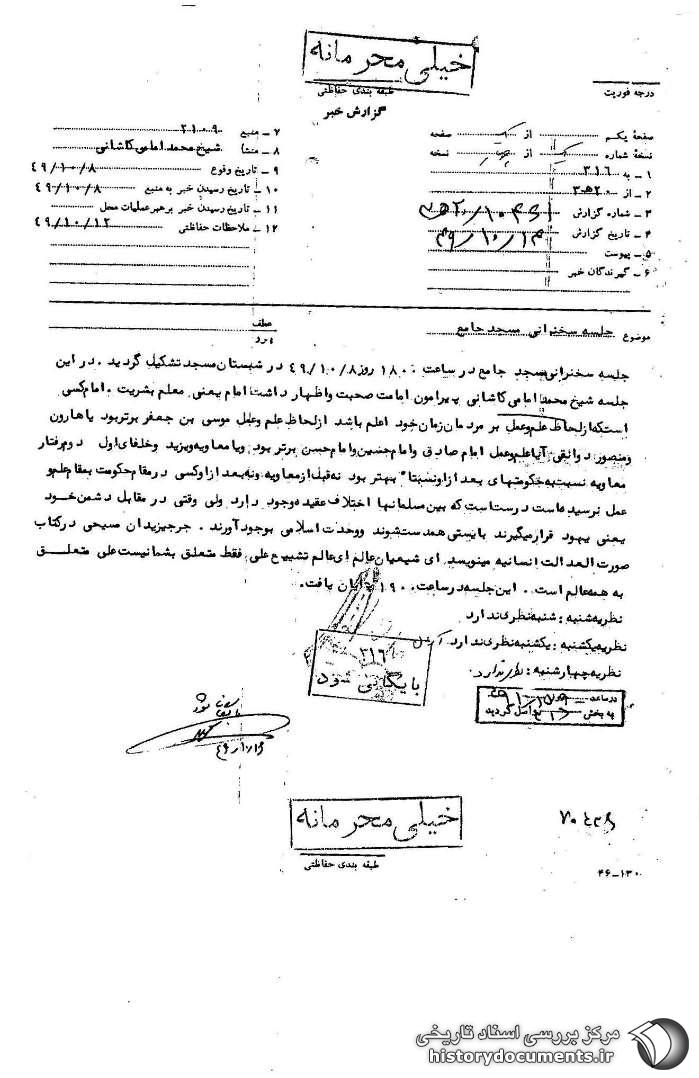 خیلی محرمانه
طبقه بندی حفاظتی
گزارش خبر
درجه فوریت
صفحهٔ یکم از صفحه
نسخهٔ شماره از نسخه
۱ ـ به ۳۱۶
۲ ـ از ۲۰ه۳
۳ ـ شماره گزارش
۴ ـ تاریخ گزارش ۴۹/۱۰/۱۳
۵ ـ پیوست
۶ ـ گیرندگان خبر
۷ ـ منبع ۲۱۰۹
۸ ـ منشأ شیخ محمد امامی کاشانی
۹ ـ تاریخ وقوع ۴۹/۱۰/۸
۱۰ ـ تاریخ رسیدن خبر به منبع ۴۹/۱۰/۸
۱۱ ـ تاریخ رسیدن خبر برهبر عملیات محل
۱۲ ـ ملاحظات حفاظتی ۴۹/۱۰/۱۲
موضوع جلسه سخنرانی مسجد جامع
عطف
پیرو
جلسه سخنرانی مسجد جامع در ساعت ۱۸۰۰ روز ۴۹/۱۰/۸ در شبستان مسجد تشکیل گردید . در این
جلسه شیخ محمد امامی کاشانی پیرامون امامت صحبت واظهار داشت امام یعنی معلم بشریت . امام کسی
است که از لحاظ علم وعمل بر مردمان زمان خود اعلم باشد ازلحاظ علم وعمل موسی بن جعفر برتر بود یا هارون
ومنصور دوانقی آیا علم وعمل امام صادق وامام حسین وامام حسن برتر بود ویا معاویه ویزید وخلفای اول دوم رفتار
معاویه نسبت به حکومتهای بعد ازاو نسبتاً بهتر بود نه قبل از معاویه ونه بعد ازاو کسی در مقام حکومت بمقام علم و
عمل نرسیده است درست است که بین مسلمانها اختلاف عقیده وجود دارد ولی وقتی در مقابل دشمن خود
یعنی یهود قرار میگیرند بایستی همدست شوند ووحدت اسلامی بوجود آورند . جرجی زیدان مسیحی در کتاب
صورت العدالت انسانیه مینویسد ای شیعیان عالم ای عالم تشییع علی فقط متعلق بشما نیست علی متعلـــق
به همه عالم است . این جلسه در ساعت ۱۹۰۰ پایان یافت .
نظریه شنبه : شنبه نظری ندارد
نظریه یکشنبه : یکشنبه نظری ندارد
نظریه چهارشنبه : نظری ندارد .
۳۱۶
بایگانی شود
در ساعت
به بخش ۳۱۶ واصل گردید
بایگانی شود
خیلی محرمانه
طبقه بندی حفاظتی
۴۶ـ۱۳۰
مرکز بررسی اسناد تاریخی
historydocuments.ir